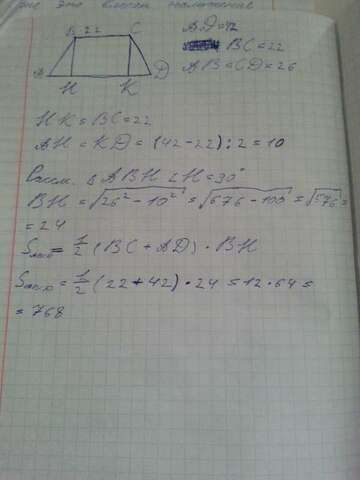 B 22 C
A D
H K
AD=42
BC=22
AB=CD=26
HK=BC=22
AH=KD=(42-22):2=10
Рассм. △ ABH ∠H=90°
BH=√26²-10²=√676-100=√576=
=24
Sтр=½(BC+AD)·BH
S=½(22+42)·24=12·64=
=768